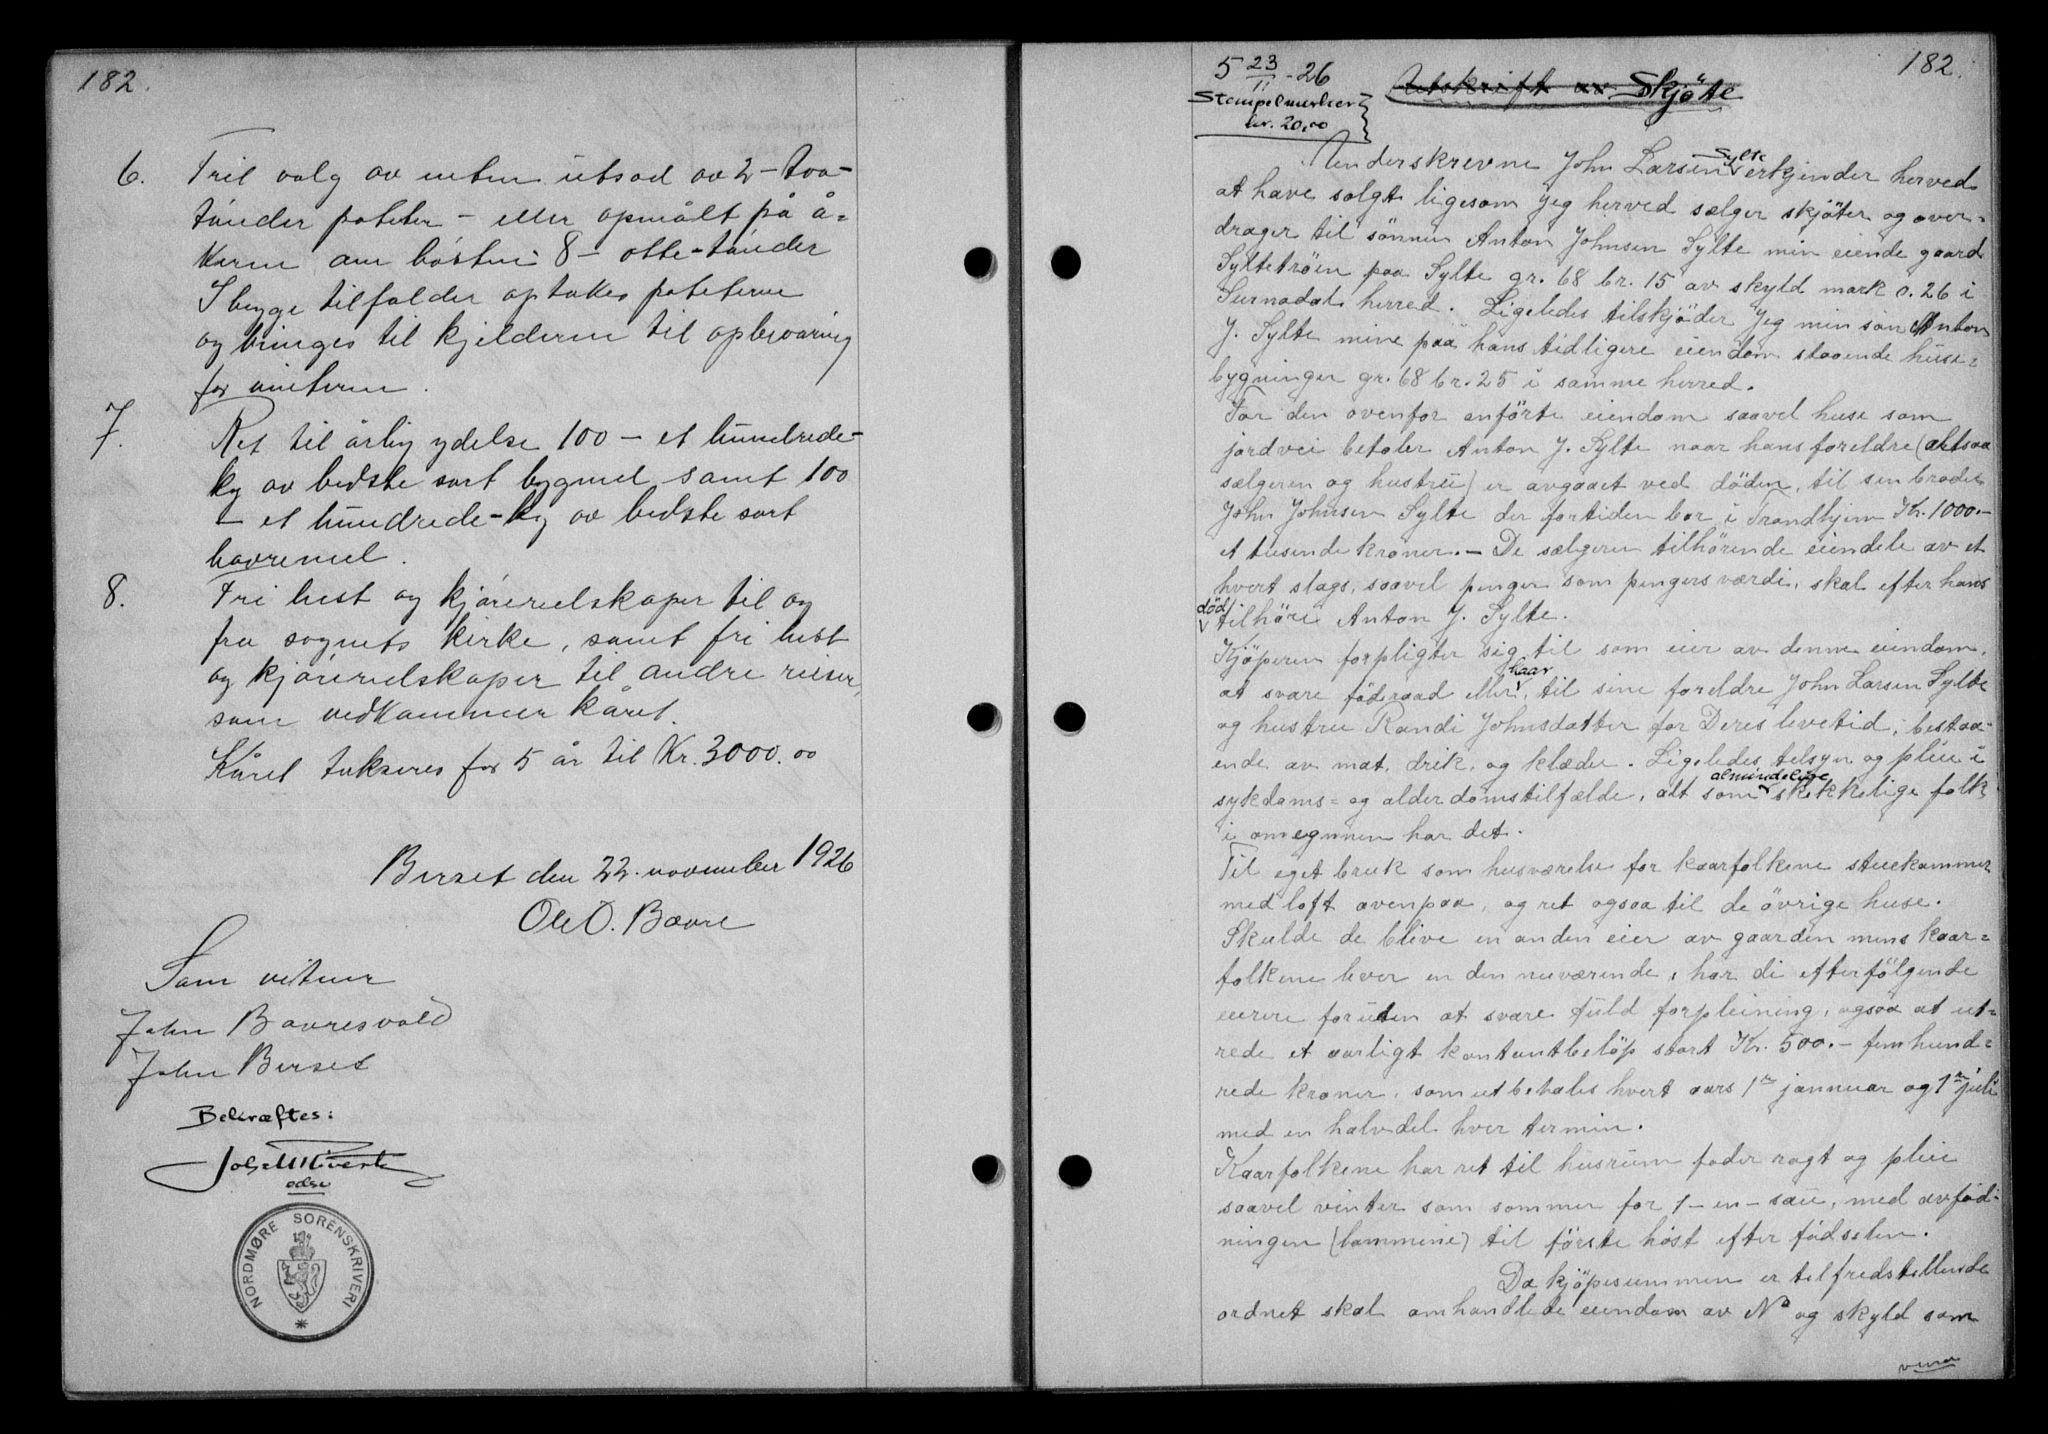 182.
6. Frit valg av enten utsæd av 2 - tva -
tønder poteter - eller opmålt på å-
keren om høsten 8 - otte - tønder
I begge tilfælder optakes poteterne
og bringes til kjelderen til opbevaring
for vinteren.
7. Ret til årlig ydelse 100 - et hundrede -
kg av bedste sort bygmel samt 100
- et hundrede - kg av bedste sort
havremel.
8. Fri hest og kjøreredskaper til og
fra sognets kirke, samt fri hest
og kjøreredskaper til andre reiser,
som vedkommer kåret.
Kåret takseres for 5 år til Kr. 3000.00
Berset den 22. november 1926
Ole O. Bævre
Som vitner
John Bævresvold
John Berset
Bekræftes:
edse
NORDMØRE SORENSKRIVERI
182.
5 23/11 - 26
Stempelmerker
kr. 20,00
Utskrift av Skjöte
Underskrevne John Larsen Sylte erkjender herved
at have solgt ligesom jeg herved sælger skjöter og over-
drager til sönnen Anton Johnsen Sylte min eiende gaard
Syltetröen paa Sylte gr. 68 br. 15 av skyld mark 0.26 i
Surnadal herred. Ligeledes tilskjöder jeg min sön Anton
J. Sylte mine paa hans tidligere eiendom staaende huse-
bygninger gr. 68 br. 25 i samme herred.
For den ovenfor anförte eiendom saavel huse som
jordvei betaler Anton J. Sylte naar hans foreldre (altsaa
sælgeren og hustru) er avgaaet ved döden, til sin broder
John Johnsen Sylte der fortiden bor i Trondhjem Kr. 1000.-
et tusende kroner. - De sælgeren tilhörende eiendele av et
hvert slags, saavel penger som pengers værdi, skal efter hans
död tilhöre Anton J. Sylte.
Kjöperen forpligter sig til som eier av denne eiendom,
at svare föderaad eller kaar, til sine foreldre John Larsen Sylte
og hustru Randi Johnsdatter for Deres levetid, bestaa-
ende av mat, drik, og klæder. Ligeledes tilsyn og pleie i
sykdoms- og alderdomstilfælde, alt som almindelige skikkelige folk
i omegnen har det.
Til eget bruk som husværelse for kaarfolkene stuekammer
med loft ovenpaa, og ret ogsaa til de övrige huse.
Skulde de blive en anden eier av gaarden mens kaar-
folkene lever en den nuværende, har de efterfölgende
eiere foruden at svare fuld forpleining, ogsaa at ut-
rede et aarligt kontantbelöp stort Kr. 500.- fem hund-
rede kroner, som utbetales hvert aars 1ste jannuar og 1ste juli
med en halvdel hver termin.
Kaarfolkene har ret til husrum foder rögt og pleie
saavel vinter som sommer for 1 - en - sau, med avföd-
ningen (lammene) til förste höst efter födselen.
Da kjöpesummen er tilfredstillende
ordnet skal omhandlede eiendom av No og skyld som
vend